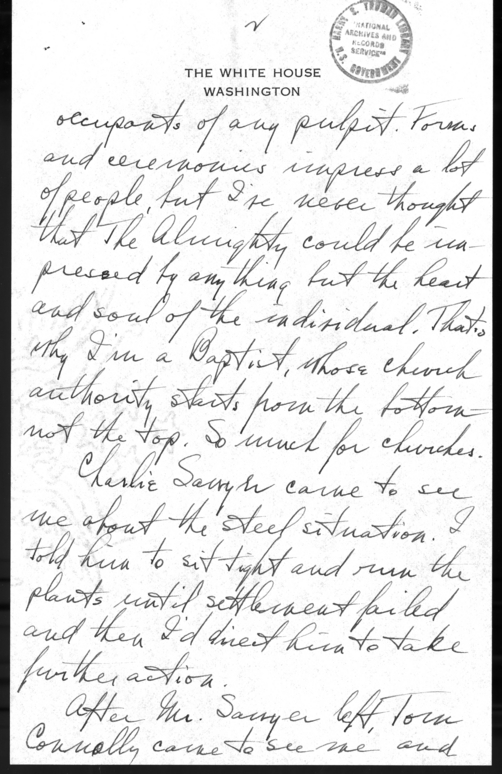 2
HARRY S. TRUMAN LIBRARY
"NATIONAL
ARCHIVES AND
RECORDS
SERVICE"
U.S. GOVERNMENT
THE WHITE HOUSE
WASHINGTON
occupants of any pulpit. Forms
and ceremonies impress a lot
of people, but I've never thought
that The Almighty could be im-
pressed by anything but the heart
and soul of the individual. That's
why I'm a Baptist, whose church
authority starts from the bottom-
not the top. So much for churches.
Charlie Sawyer came to see
me about the steel situation. I
told him to sit tight and run the
plants until settlement failed
and then I'd direct him to take
further action.
After Mr. Sawyer left, Tom
Connolly came to see me and